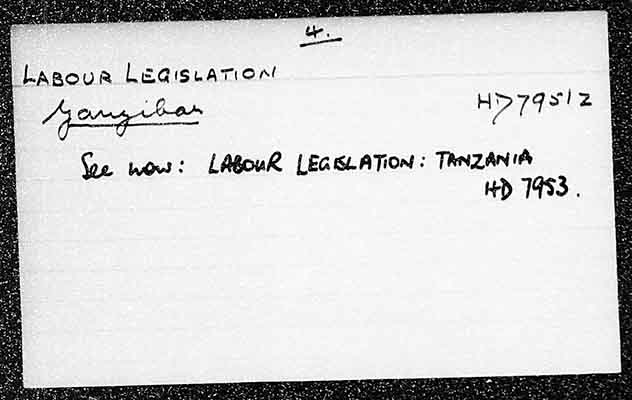 4.
LABOUR LEGISLATION
Zanzibar
HD 7951 Z
See now: LABOUR LEGISLATION: TANZANIA
HD 7953.